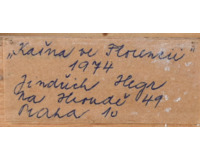 „Kašna ve Florencii"
1974
Jindřich Hegr
na Hroudě 49
Praha 10